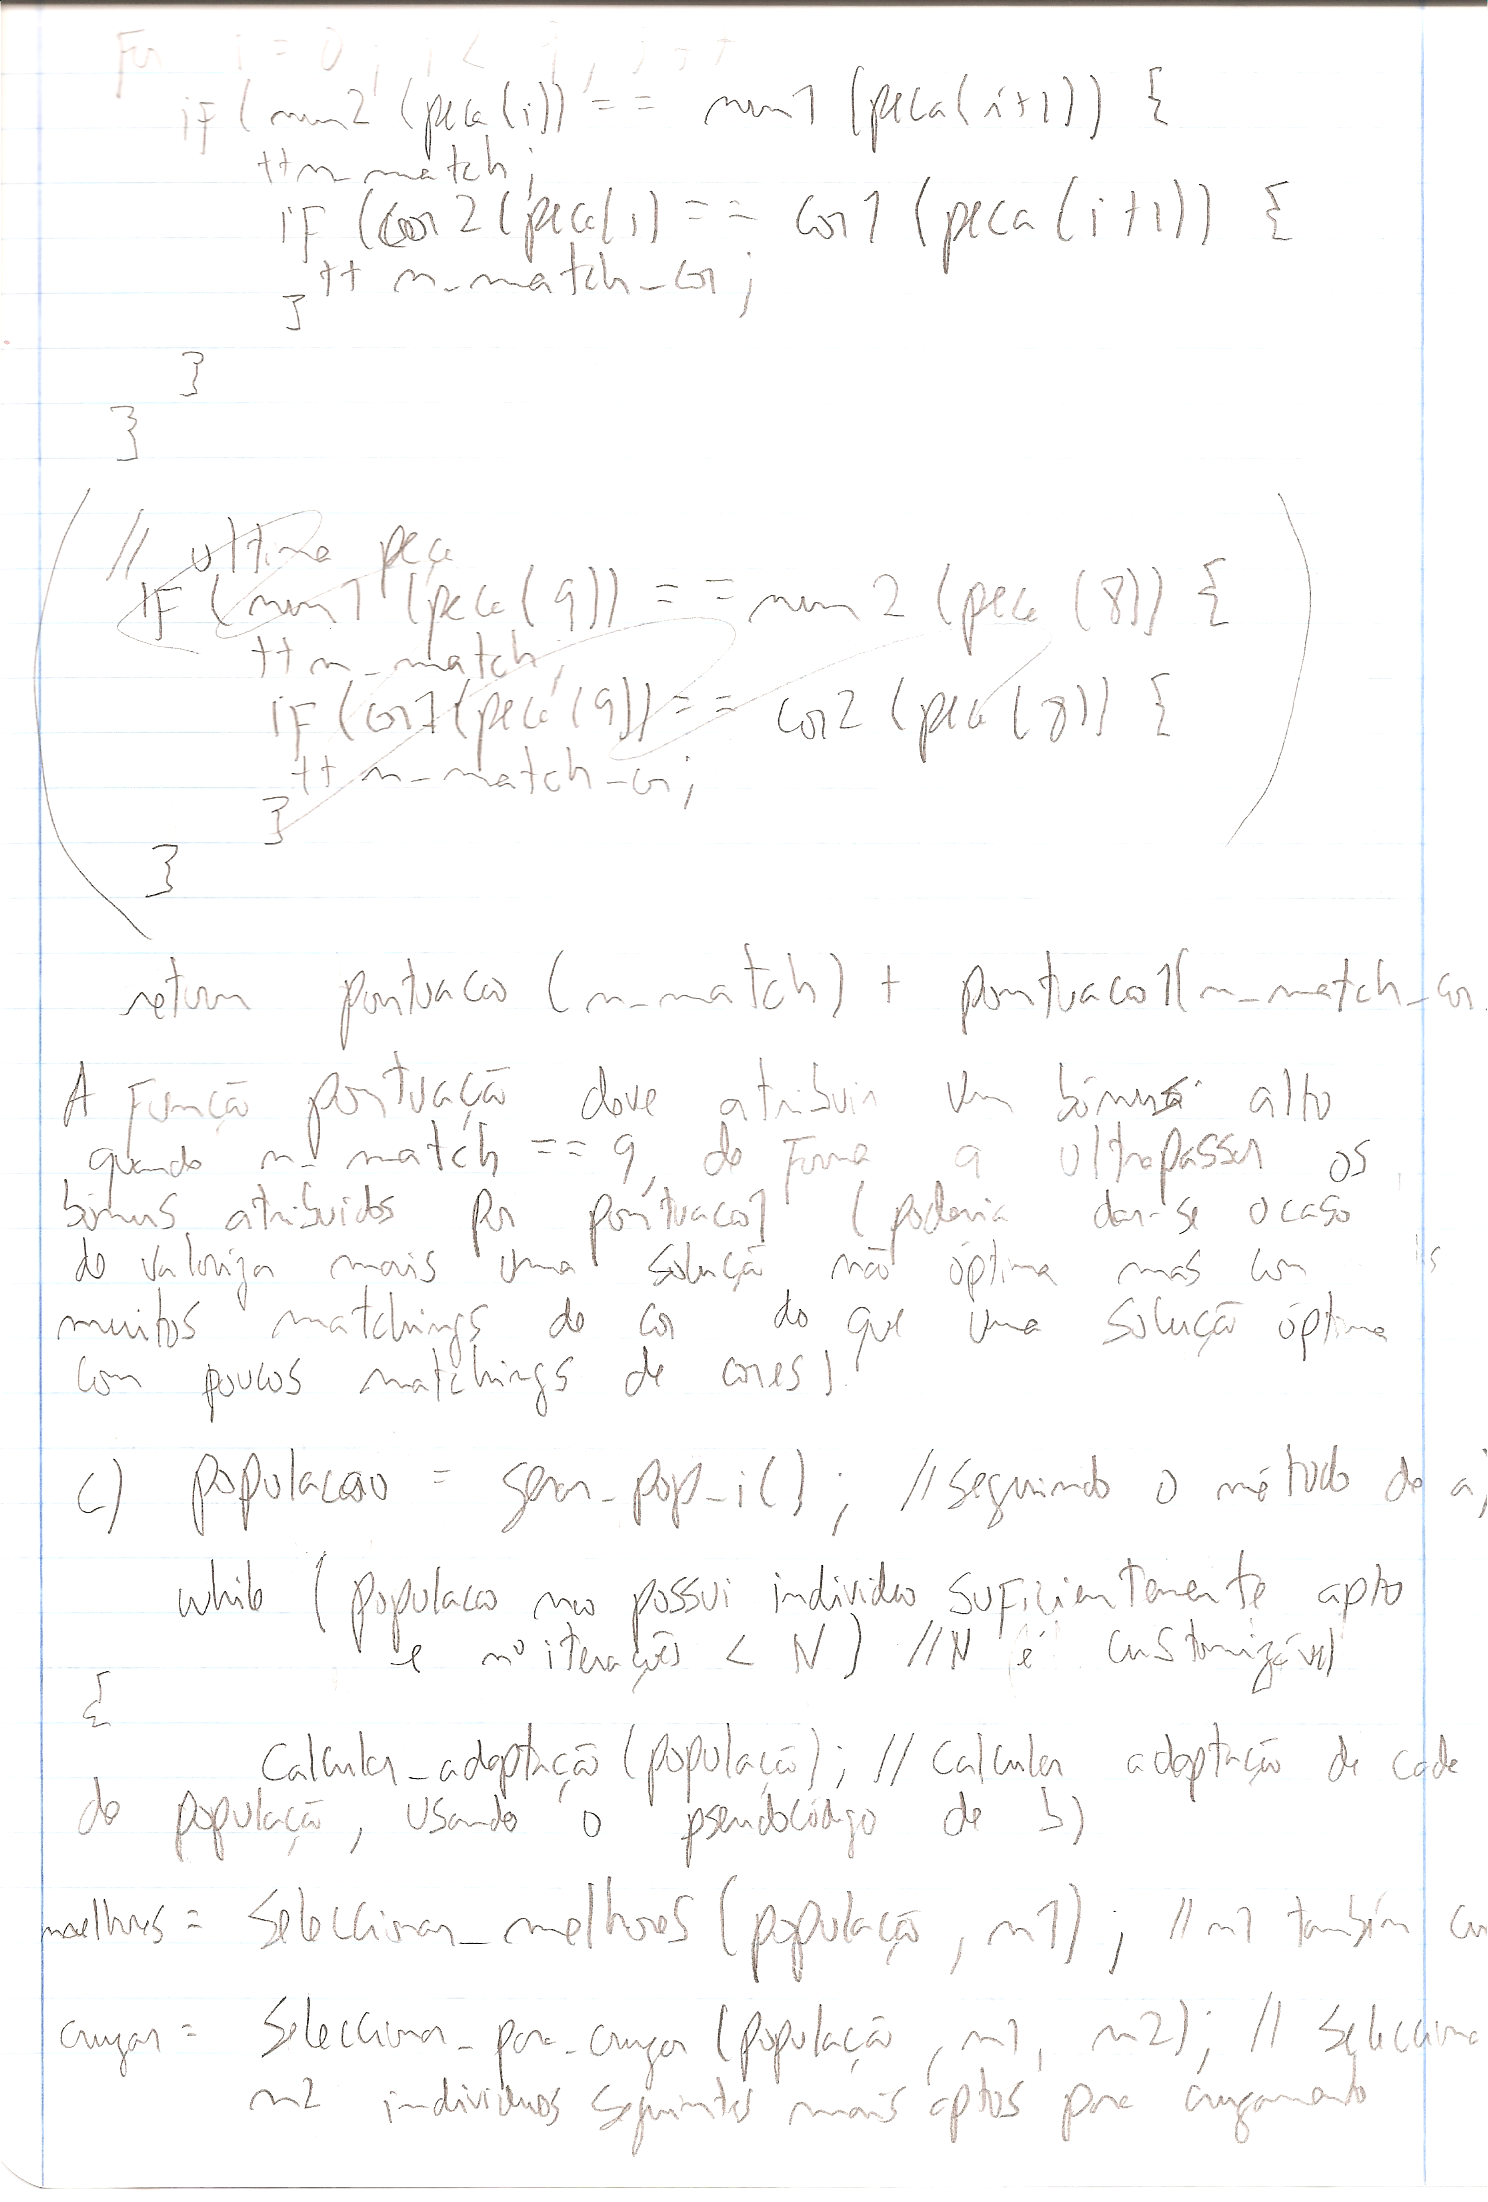 For i = 0; i < 9; i++
if (num2 (peca(i)) == num1 (peca(i+1)) {
++n_match;
if (cor2 (peca(i) == cor1 (peca(i+1)) {
++ n_match_cor;
}
}
}
// ultima peça
if (num1 (peca(9)) == num2 (peca (8)) {
++n_match;
if (cor1 (peca (9)) == cor2 (peca (8)) {
++ n_match_cor;
}
}
return pontuacao (n_match) + pontuacao1(n_match_cor
A função pontuação deve atribuir um bónus alto
quando n_match == 9, de forma a ultrapassar os
bónus atribuidos por pontuacao1 (poderia dar-se o caso
de valorizar mais uma solução não óptima mas com
muitos matchings de cor do que uma solução óptima
com poucos matchings de cores).
c) populacao = gerar_pop_i(); // seguindo o método de a)
while (populacao nao possui individuo suficientemente apto
e nº iterações < N) // N é customizável
{
Calcular_adaptação (população); // Calcular adaptação de cada
de população, usando o pseudocódigo de b)
melhores = Seleccionar_melhores (população, m1); // m1 também cu
cruzar = Seleccionar_para_cruzar (população, m1, m2); // Selecciona
m2 individuos seguintes mais aptos para cruzamento